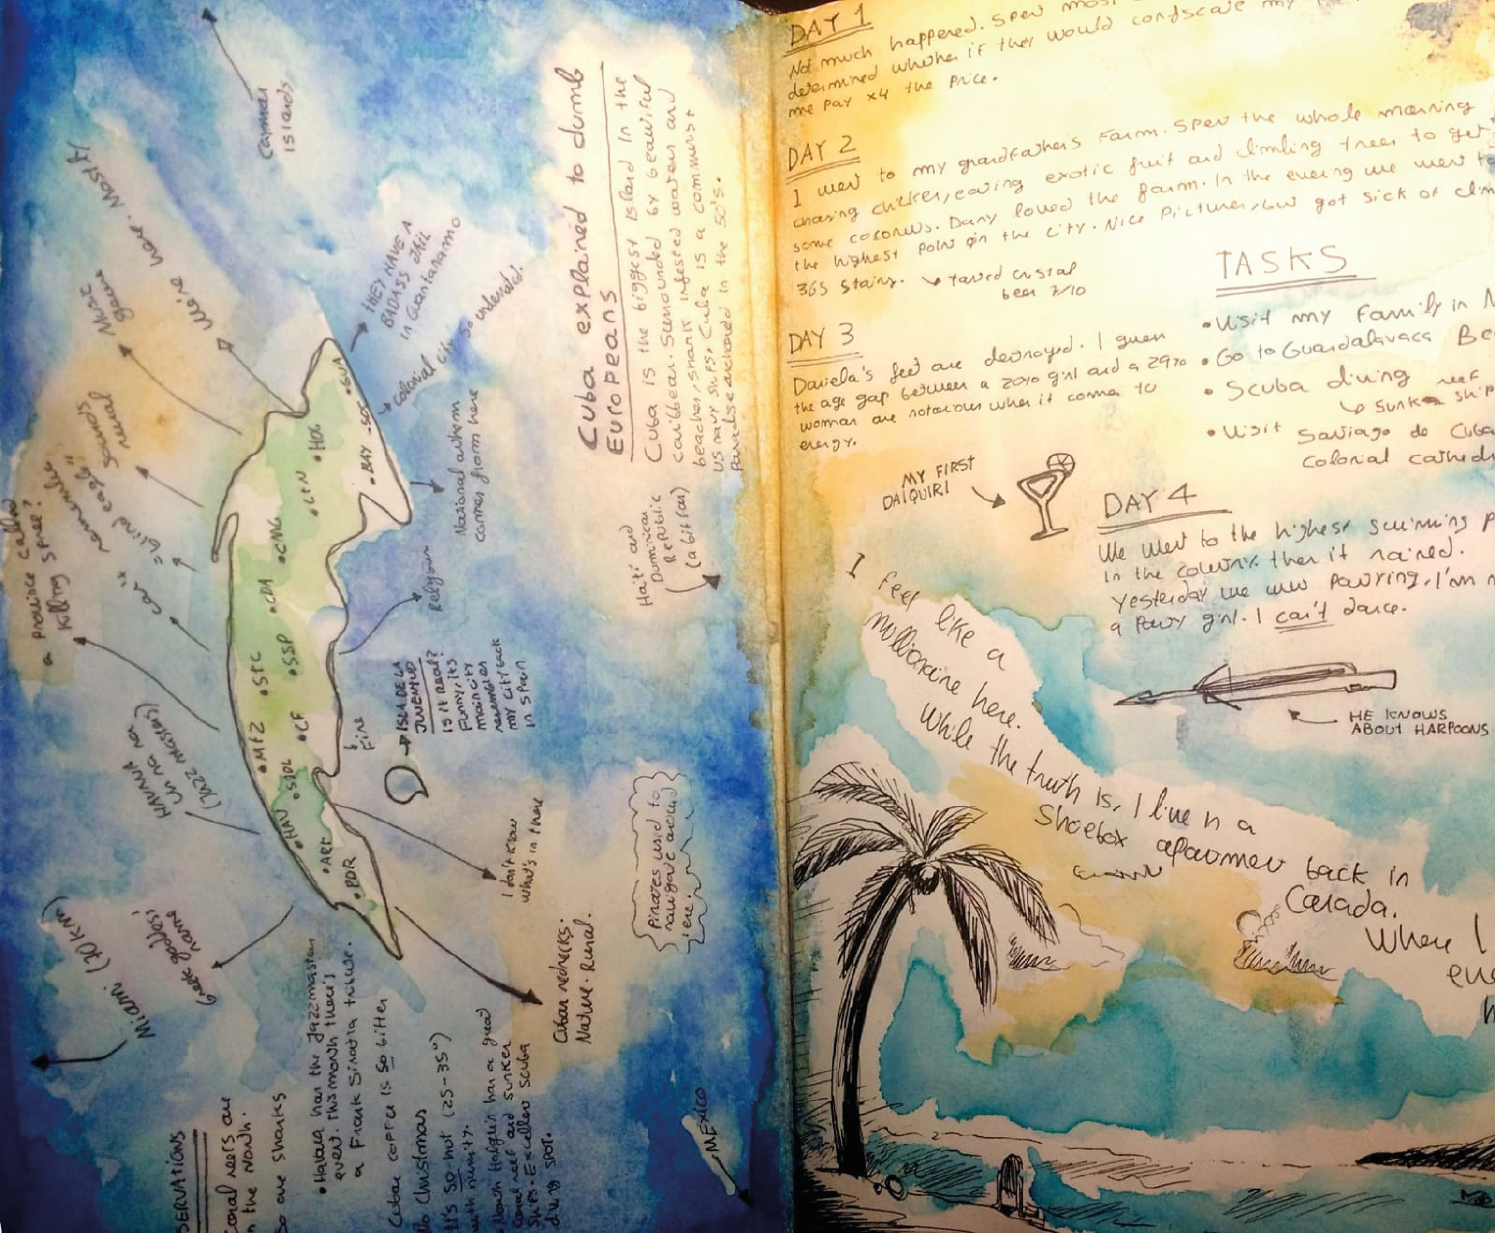 Cuba explained to dumb
Europeans
Cuba is the biggest island in the
caribbean. Surrounded by beautiful
beaches, shark infested waters and
US navy ships. Cuba is a communist
paradise anchored in the 50's.
Cayman
Islands
Mostly
were here.
Music
genre
sounds
normal
"blind eagle"
remember
a province called
killing spree?
THEY HAVE A
BADASS JAIL
in Guantanamo
colonial city. So underrated.
National anthem
comes from here
Religious
Haiti and
Dominican
Republic
(a bit far)
ISLA DE LA
JUVENTUD
is it real?
Funny, its
main city
resembles
my city back
in Spain
Fine
HAVANA
un na na
(JAZZ MASTERS)
GUA
SDC
BAY
HOG
LTN
CMG
CDA
SSP
STC
CF
MTZ
HAV
ART
PDR
I don't know
what's in there
Pirates used to
navigate around
here.
Cuban rednecks.
Nature. Rural.
Miami (90km)
Greek goddess'
name
MEXICO
SERVATIONS
Coral reefs are
in the North.
So are sharks
• Habana has the Jazzmaster
event. This month there's
a Frank Sinatra tribute.
Cuban coffee is so bitter
No Christmas
It's so hot (25-35°)
with humidity.
North Holguin has a great
coral reef and sunken
ships. Excellent scuba
diving spot.
DAY 1
Not much happened. Spent most
determined whether if they would confiscate my
me pay x4 the price.
DAY 2
I went to my grandfather's Farm. Spent the whole morning
chasing chicken, eating exotic fruit and climbing trees to get
some coconuts. Dany loved the farm. In the evening we went to
the highest point on the city. Nice Pictures, but got sick of
365 stairs. ↳ Tasted cristal
beer 7/10
DAY 3
Daniela's feet are destroyed. I guess
the age gap between a 20yo girl and a 29yo
woman are notorious when it comes to
energy.
TASKS
• Visit my Family in
• Go to Guardalavaca
• Scuba diving reef
↳ Sunken ship
• Visit Santiago de Cuba
colonial
MY FIRST
DAIQUIRI
DAY 4
We went to the highest swimming
in the country. then it rained.
Yesterday we were partying, I'm
a Party girl. I can't dance.
HE KNOWS
ABOUT HARPOONS
I feel like a
millionaire here.
While the truth is, I live in a
Shoebox apartment back in
Canada.
When I